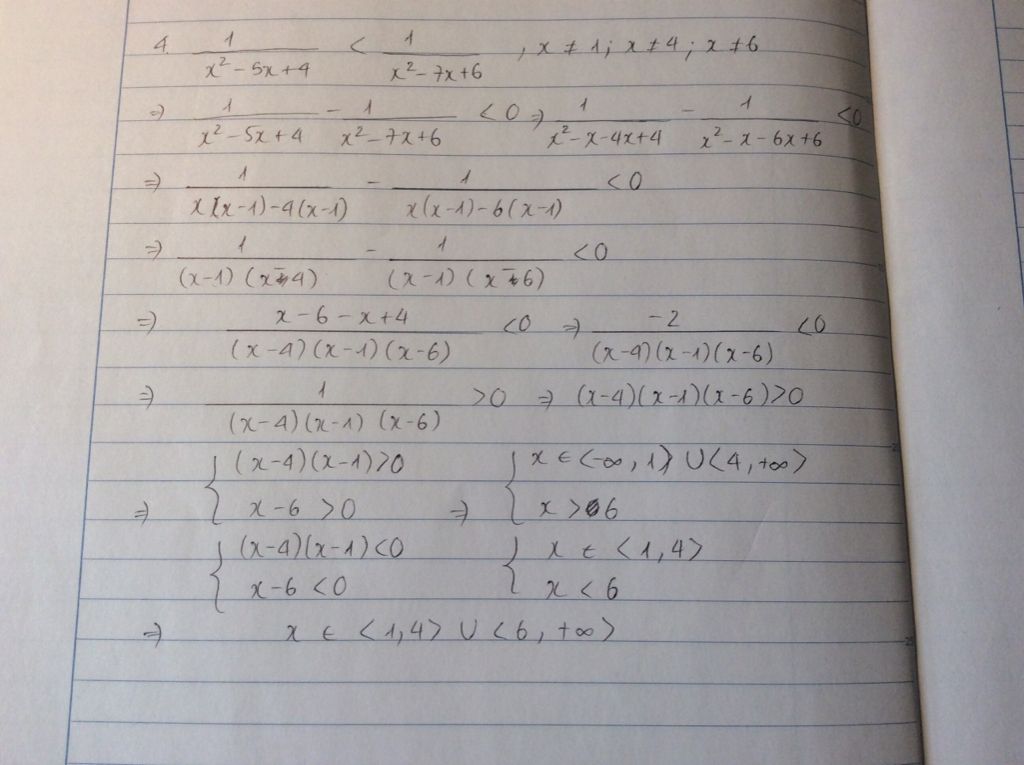 4. 1/(x² - 5x + 4) < 1/(x² - 7x + 6) , x ≠ 1; x ≠ 4; x ≠ 6
⇒ 1/(x² - 5x + 4) - 1/(x² - 7x + 6) < 0 ⇒ 1/(x² - x - 4x + 4) - 1/(x² - x - 6x + 6) < 0
⇒ 1/(x(x-1) - 4(x-1)) - 1/(x(x-1) - 6(x-1)) < 0
⇒ 1/((x-1)(x-4)) - 1/((x-1)(x-6)) < 0
⇒ (x - 6 - x + 4)/((x-4)(x-1)(x-6)) < 0 ⇒ -2/((x-4)(x-1)(x-6)) < 0
⇒ 1/((x-4)(x-1)(x-6)) > 0 ⇒ (x-4)(x-1)(x-6) > 0
{ (x-4)(x-1) > 0 { x ∈ <-∞, 1> ∪ <4, +∞>
⇒ x - 6 > 0 ⇒ x > 6
{ (x-4)(x-1) < 0 { x ∈ <1, 4>
x - 6 < 0 x < 6
⇒ x ∈ <1, 4> ∪ <6, +∞>